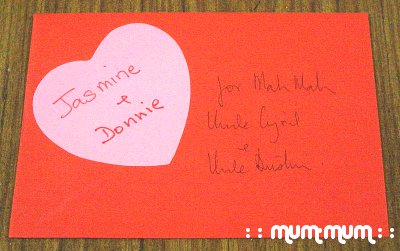 Jasmine
&
Donnie
for Mah Mah
Uncle Cyril
&
Uncle Austin
:: mum:mum ::